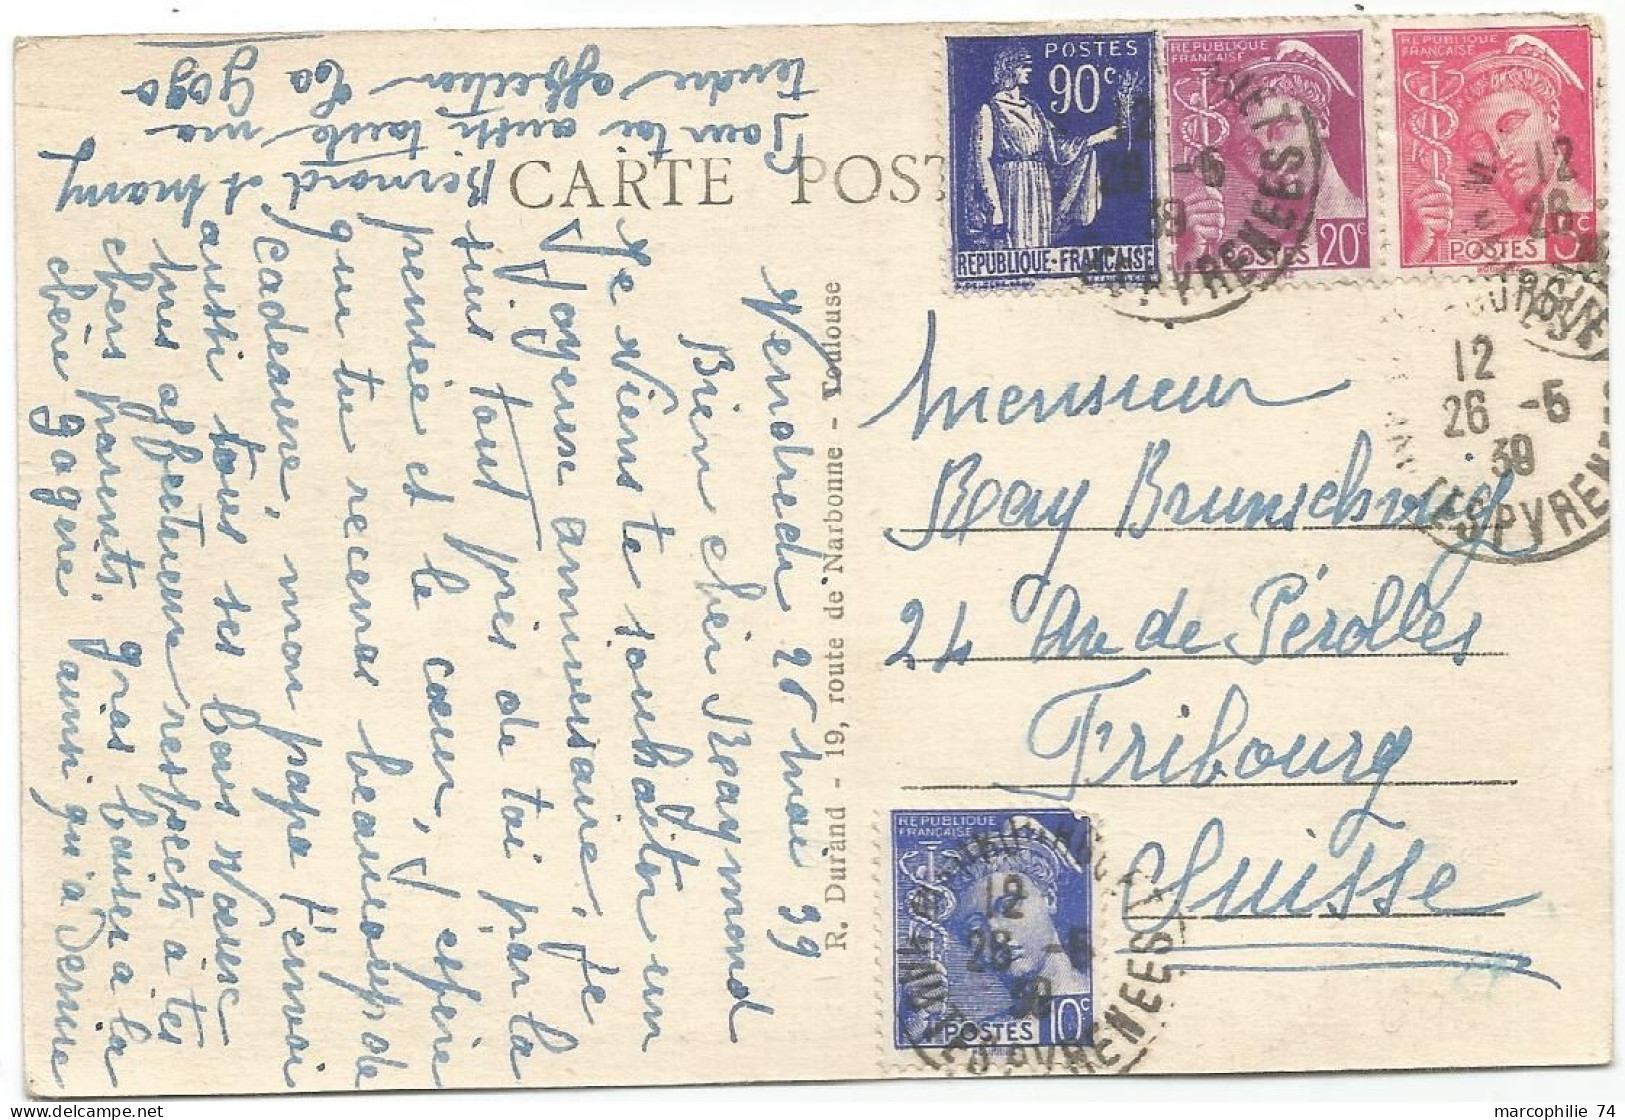 CARTE POST
R. Durand - 19, route de Narbonne - Toulouse
Vendredi 26 Mai 39
Bien cher Raymond
Je viens te souhaiter un
Joyeux anniversaire, je
suis tout près de toi par la
pensée et le cœur, J'espère
que tu recevras beaucoup de
cadeaux, mon papa t'envoi
aussi tous ses bons voeux
mes affectueux respects à tes
chers parents. gros baiser à la
chère gagère ainsi qu'à
Bernard et Mamy
Pour toi aussi toute ma
tendre affection ta Gogo
POSTES
90c
REPUBLIQUE-FRANÇAISE
REPUBLIQUE
FRANÇAISE
POSTES 20c
REPUBLIQUE
FRANÇAISE
POSTES
12
26 -5
39
PYRENEES
12
26
12
26 -5
39
PYRENEES
Monsieur
Ray Brunschwig
24 Av de Pérolles
Fribourg
Suisse
REPUBLIQUE
FRANÇAISE
POSTES 10c
12
26 -5
39
PYRENEES
marcophilie 74